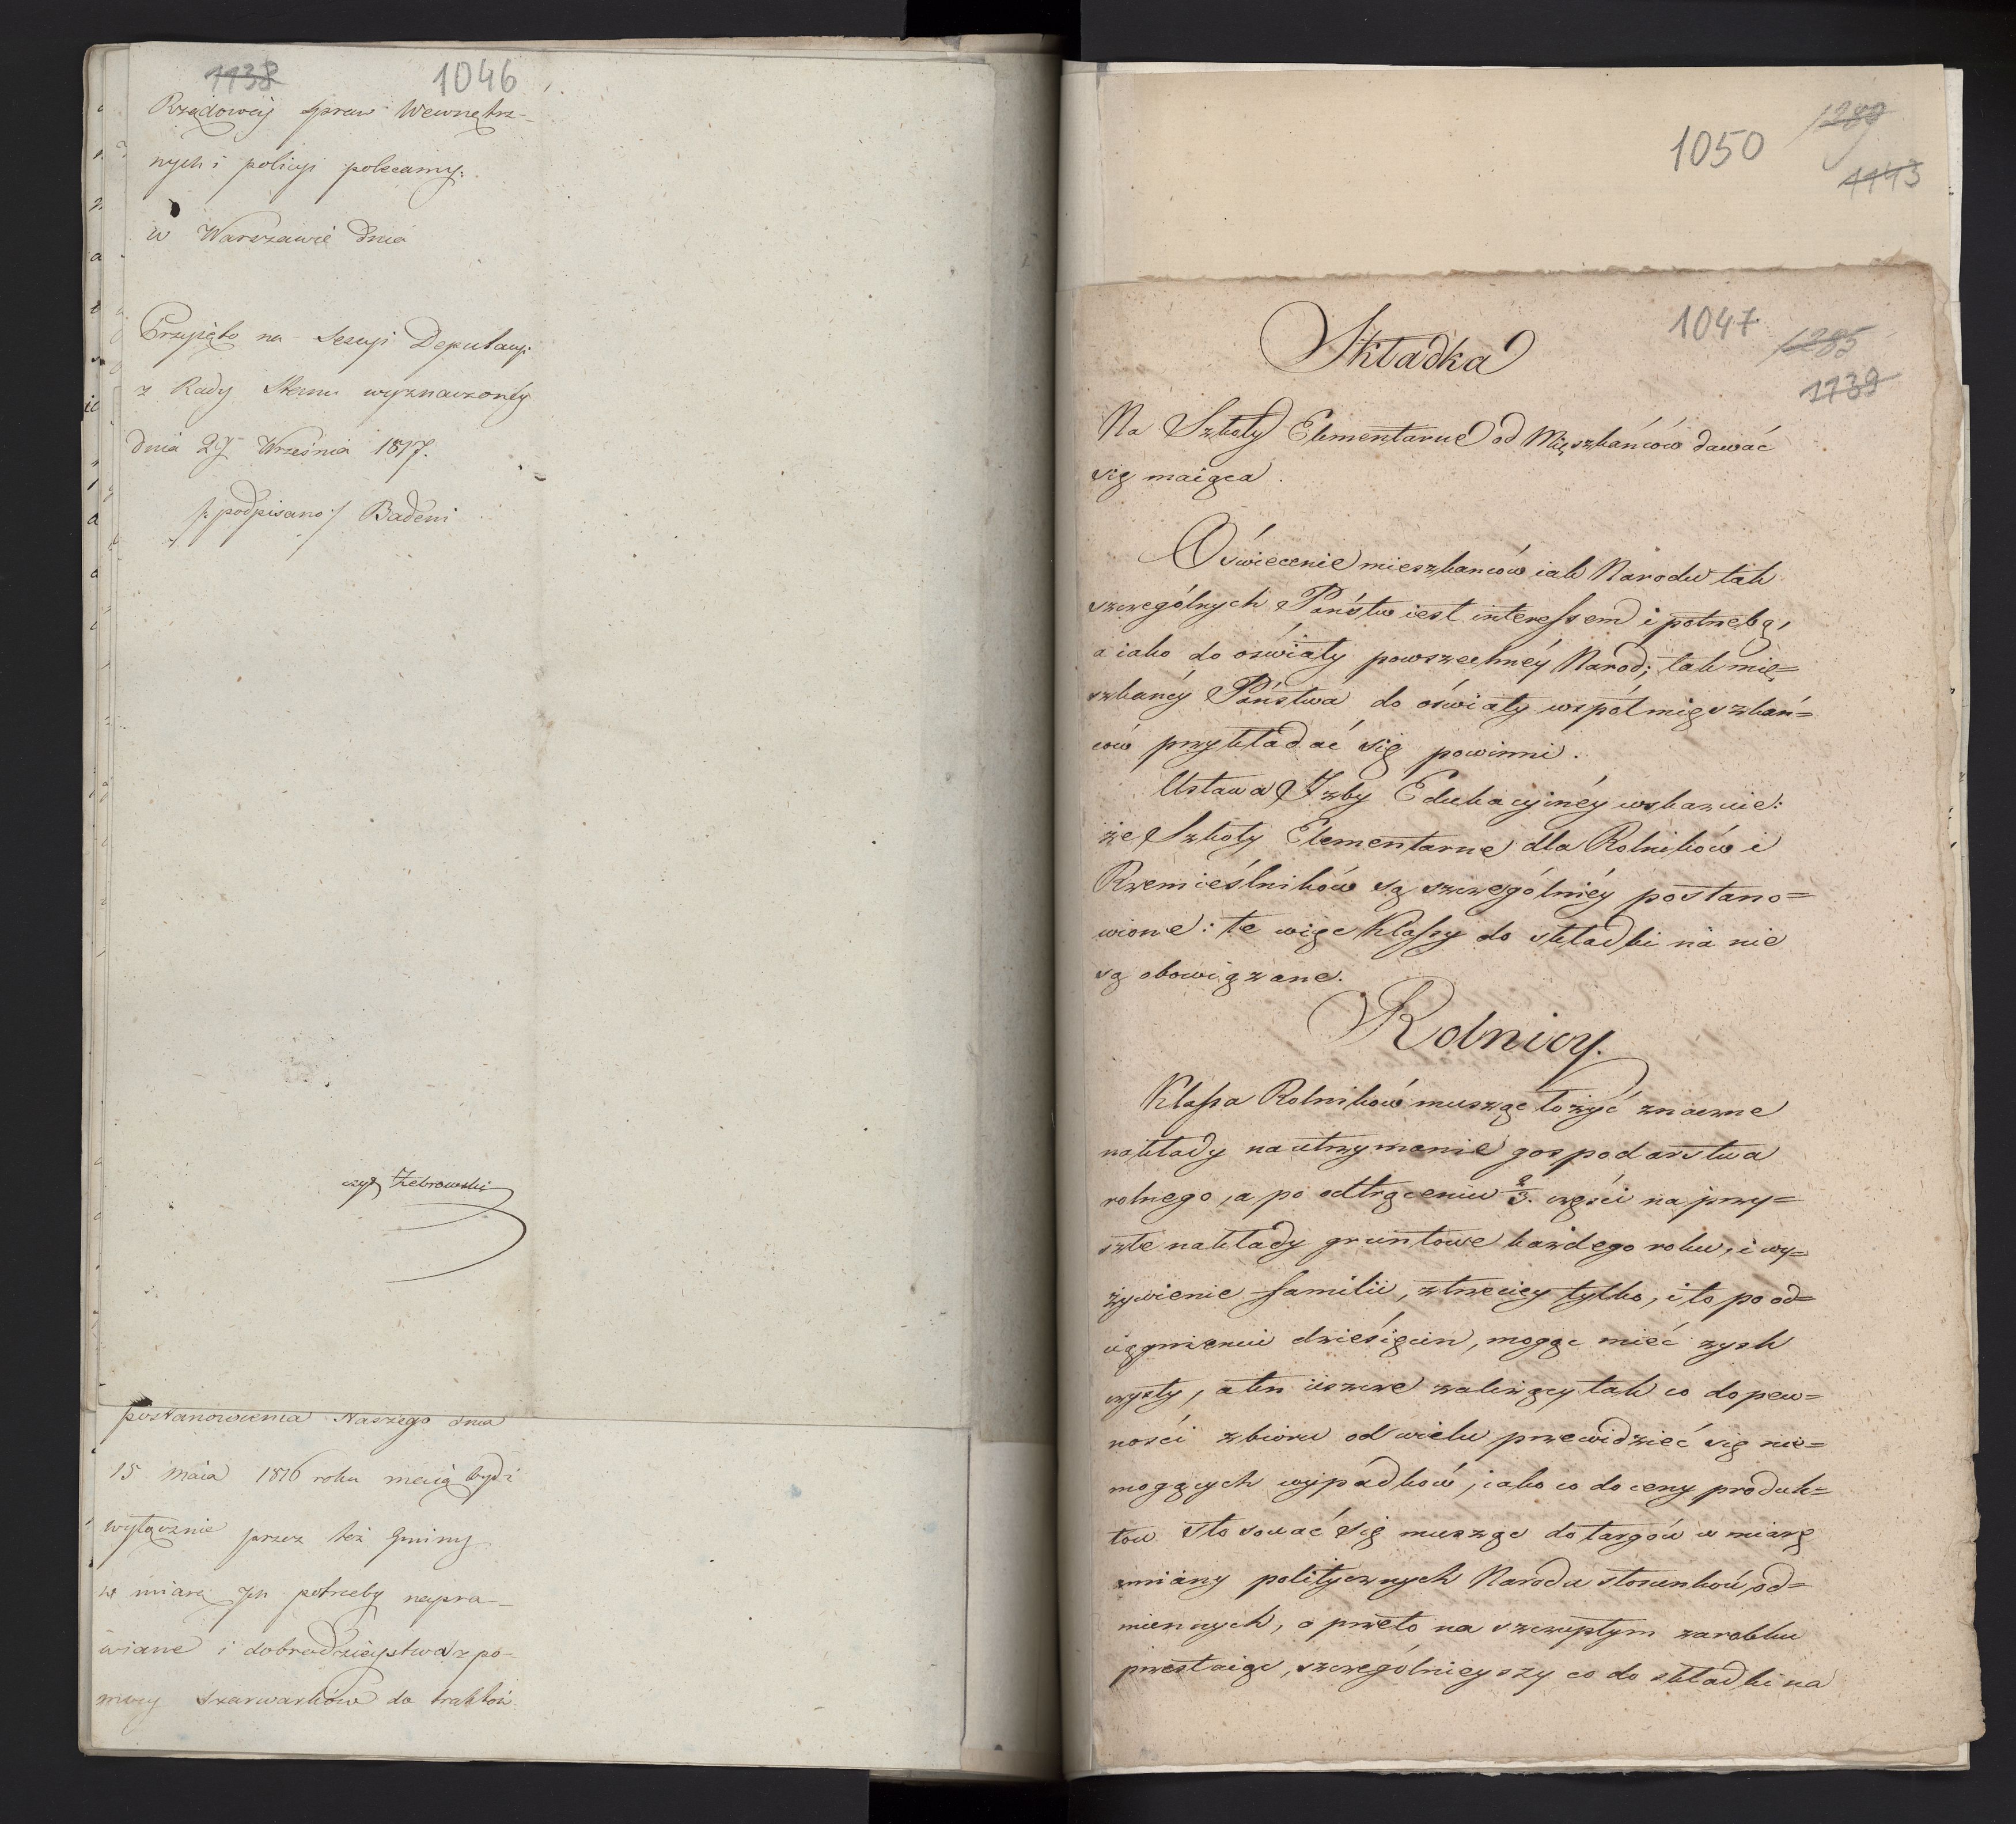 1138 1046
Rządowéy spraw Wewnętrz-
nych i policyi polecamy.
w Warszawie dnia
Przyięto na Sessyi Deputacyi
z Rady Stanu wyznaczonéy
dnia 27 Września 1817.
/: podpisano :/ Badeni
czyt Żebrowski
postanowienia Naszego dnia
15 Maia 1816 roku maią bydź
wyłącznie przez też Gminy
w miarę Ich potrzeby napra-
wiane i dobrodzieystwa z po-
mocy szarwarków do traktów
1050 1289
1143
1047 1285
1139
Składka
Na Szkoły Elementarne od Mięszkańców dawać
się maiąca.
Oświecenie mieszkanców iak Narodu tak
szczególnych Państw iest interessem i potrzebą,
a iako do oświaty powszechnéy Naród; tak mię=
szkańcy Państwa do oświaty współmięszkań=
ców przykładać się powinni.
Ustawa Izby Edukacyinéy wskazuie:
że Szkoły Elementarne dla Rolników i
Rzemieślników są szczególniéy postano=
wione: te więc Klassy do składki na nie
są obowiązane.
Rolnicy.
Klassa Rolników musząc łożyć znaczne
nakłady na utrzymanie gospodarstwa
rolnego, a po odtrąceniu 2/3. części na przy=
szłe nakłady gruntowe każdego roku, i wy=
żywienie familii, z trzeciey tylko, i to po od=
ciągnieniu dziesięcin, mogąc mieć zysk
czysty, a ten ieszcze zależący tak co do pew=
ności zbioru od wielu przewidzieć się nie=
mogących wypadków, iako co do ceny produk=
tów stosować się musząc do targów w miarę
zmiany politycznych Narodu stosunków od=
miennych, a przeto na szczupłym zarobku
przestaiąc, szczególnieyszy co do składki na